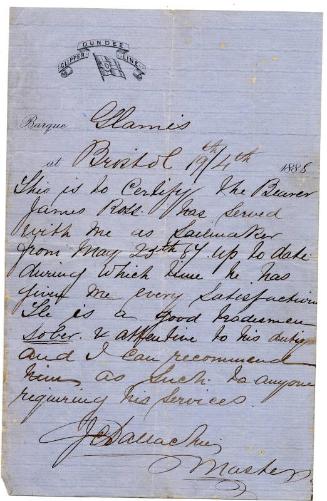 DUNDEE
CLIPPER LINE
Barque Glamis
at Bristol 19th/4th 1888
This is to Certify The Bearer
James Ross has served
with me as Sailmaker
from May 25th 87 up to date
during which time he has
given me every Satisfaction
He is a good tradesman
Sober. & attentive to his duty
and I can recommend
him as Such to anyone
requiring his services.
Master